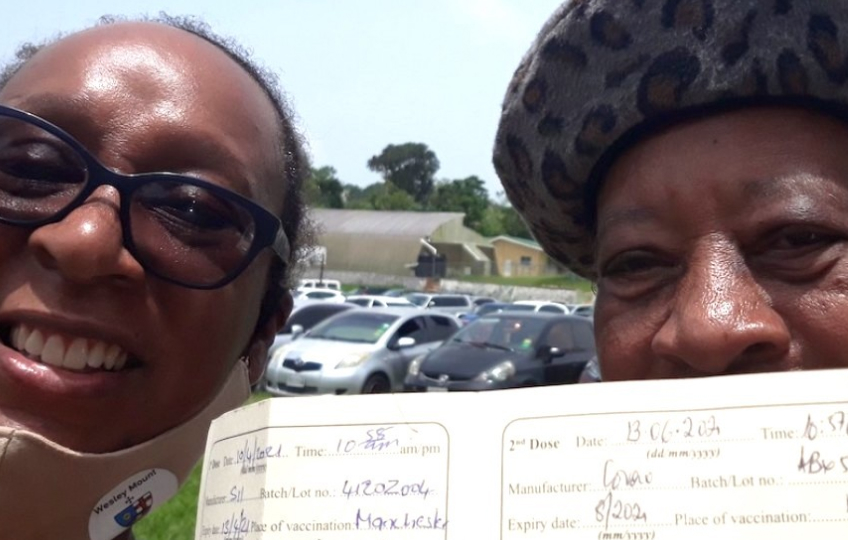 Wesley Mount
1st Dose Date: 10/4/2021 Time: 10 55 am am pm
Manufacturer: SII Batch/Lot no.: 4120Z004
Expiry date: Place of vaccination: Manchest
2nd Dose Date: 13 06.2021 Time: 10:57
(dd mm yyyy)
Manufacturer: Batch/Lot no.:
Expiry date: 8/2021 Place of vaccination:
(mm/yyyy)